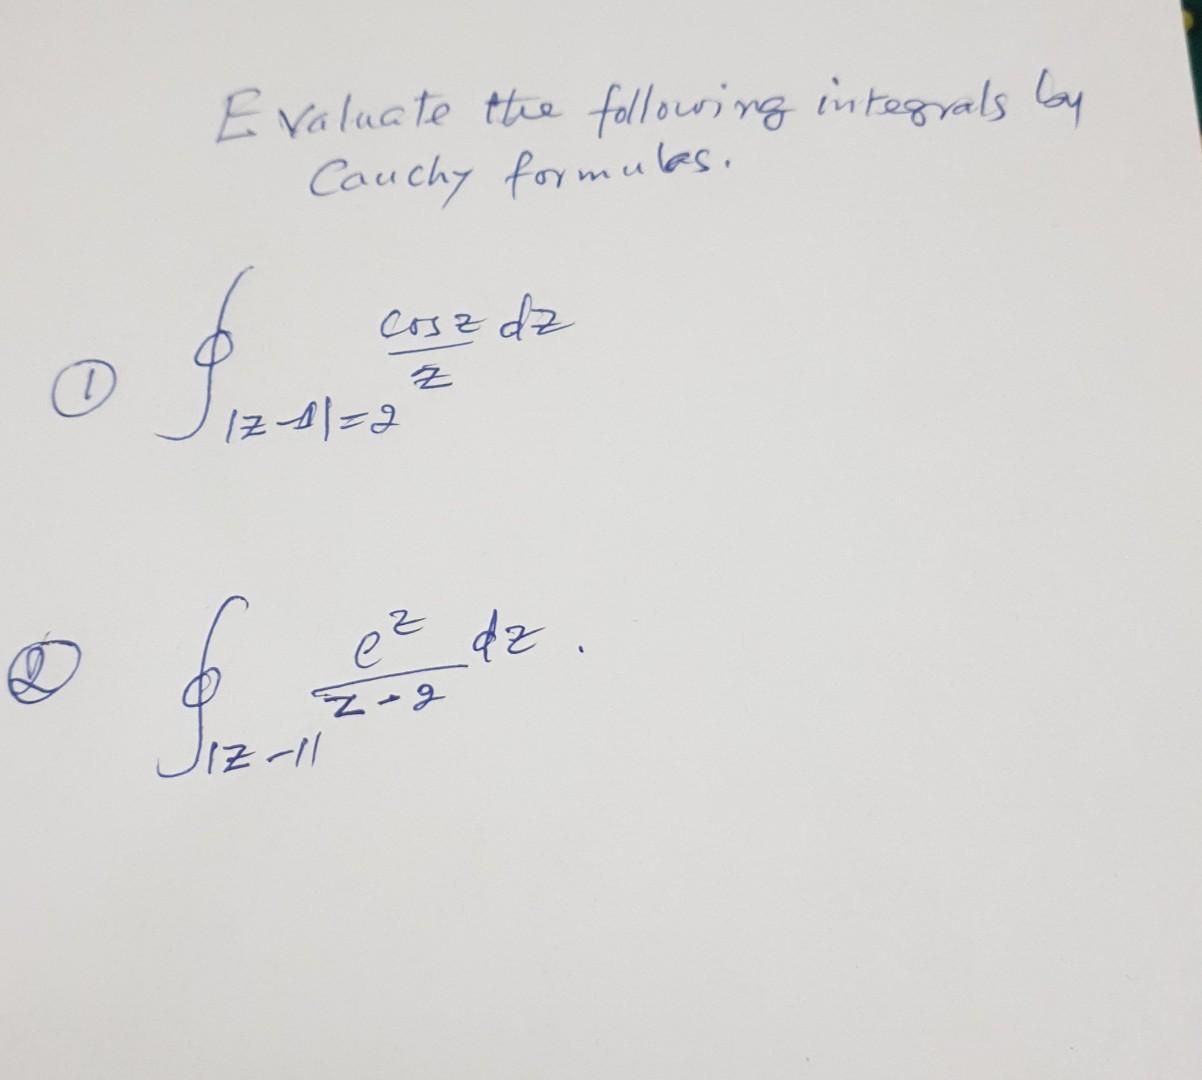 Evaluate the following integrals by
Cauchy formulas.
① ∮_{|z-1|=2} cos z/z dz
② ∮_{|z-1|} e^z/(z-2) dz .